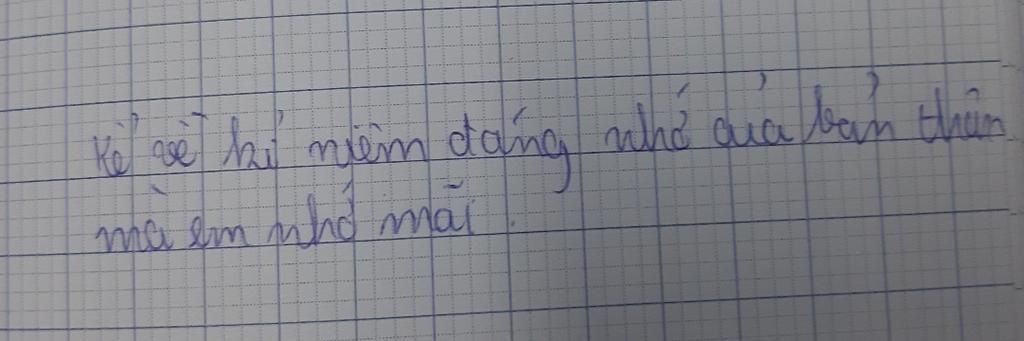 Kể về kỉ niệm đáng nhớ của bản thân
mà em nhớ mãi.